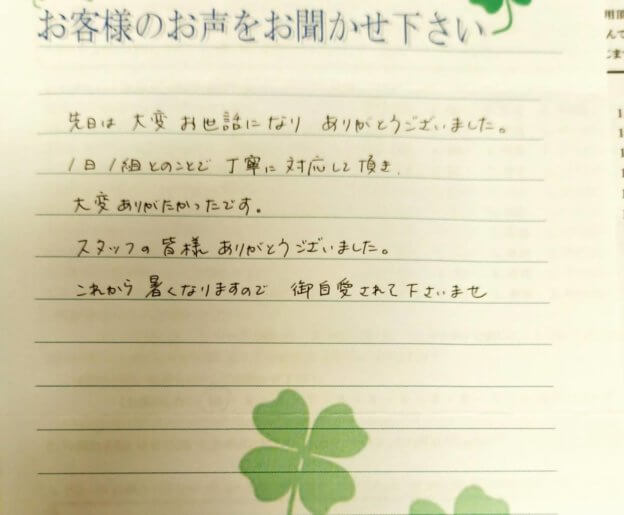 お客様のお声をお聞かせ下さい
先日は 大変 お世話になり ありがとうございました。
1日1組とのことで 丁寧に 対応して 頂き、
大変ありがたかったです。
スタッフの 皆様 ありがとうございました。
これから 暑くなりますので 御自愛されて 下さいませ
用頂
んで